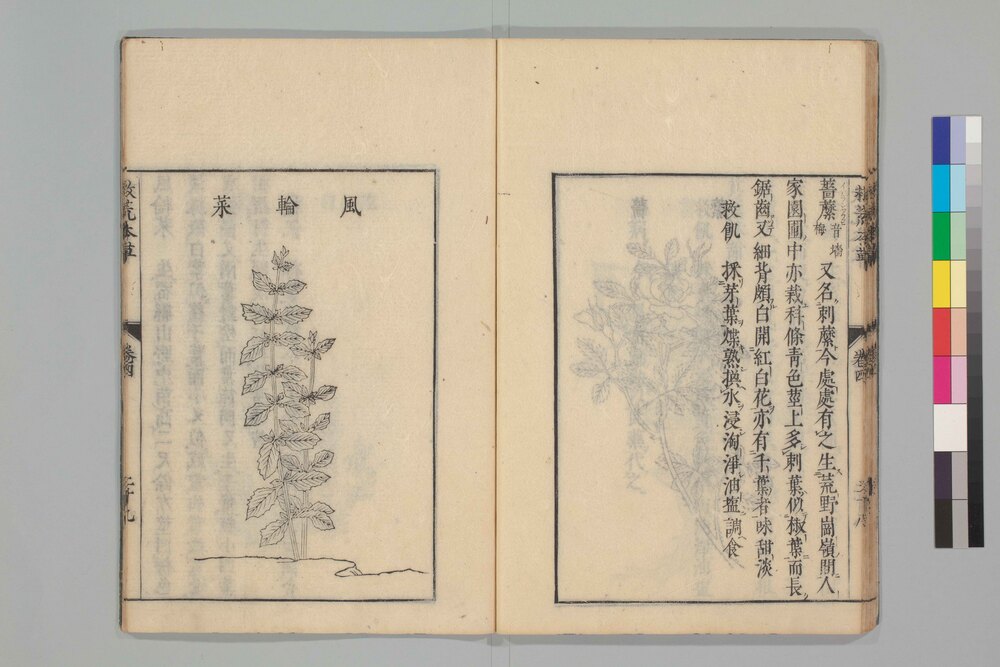 薔蘼音墻梅 又名刺蘼今處處有之生荒野崗嶺間人
家園圃中亦栽科條青色莖上多刺葉似椒葉而長
鋸齒又細背頗白開紅白花亦有千葉者味甜淡
救飢 採芽葉煠熟換水浸淘淨油塩調食
卷四
風輪菜
救荒本草
卷四
二十九